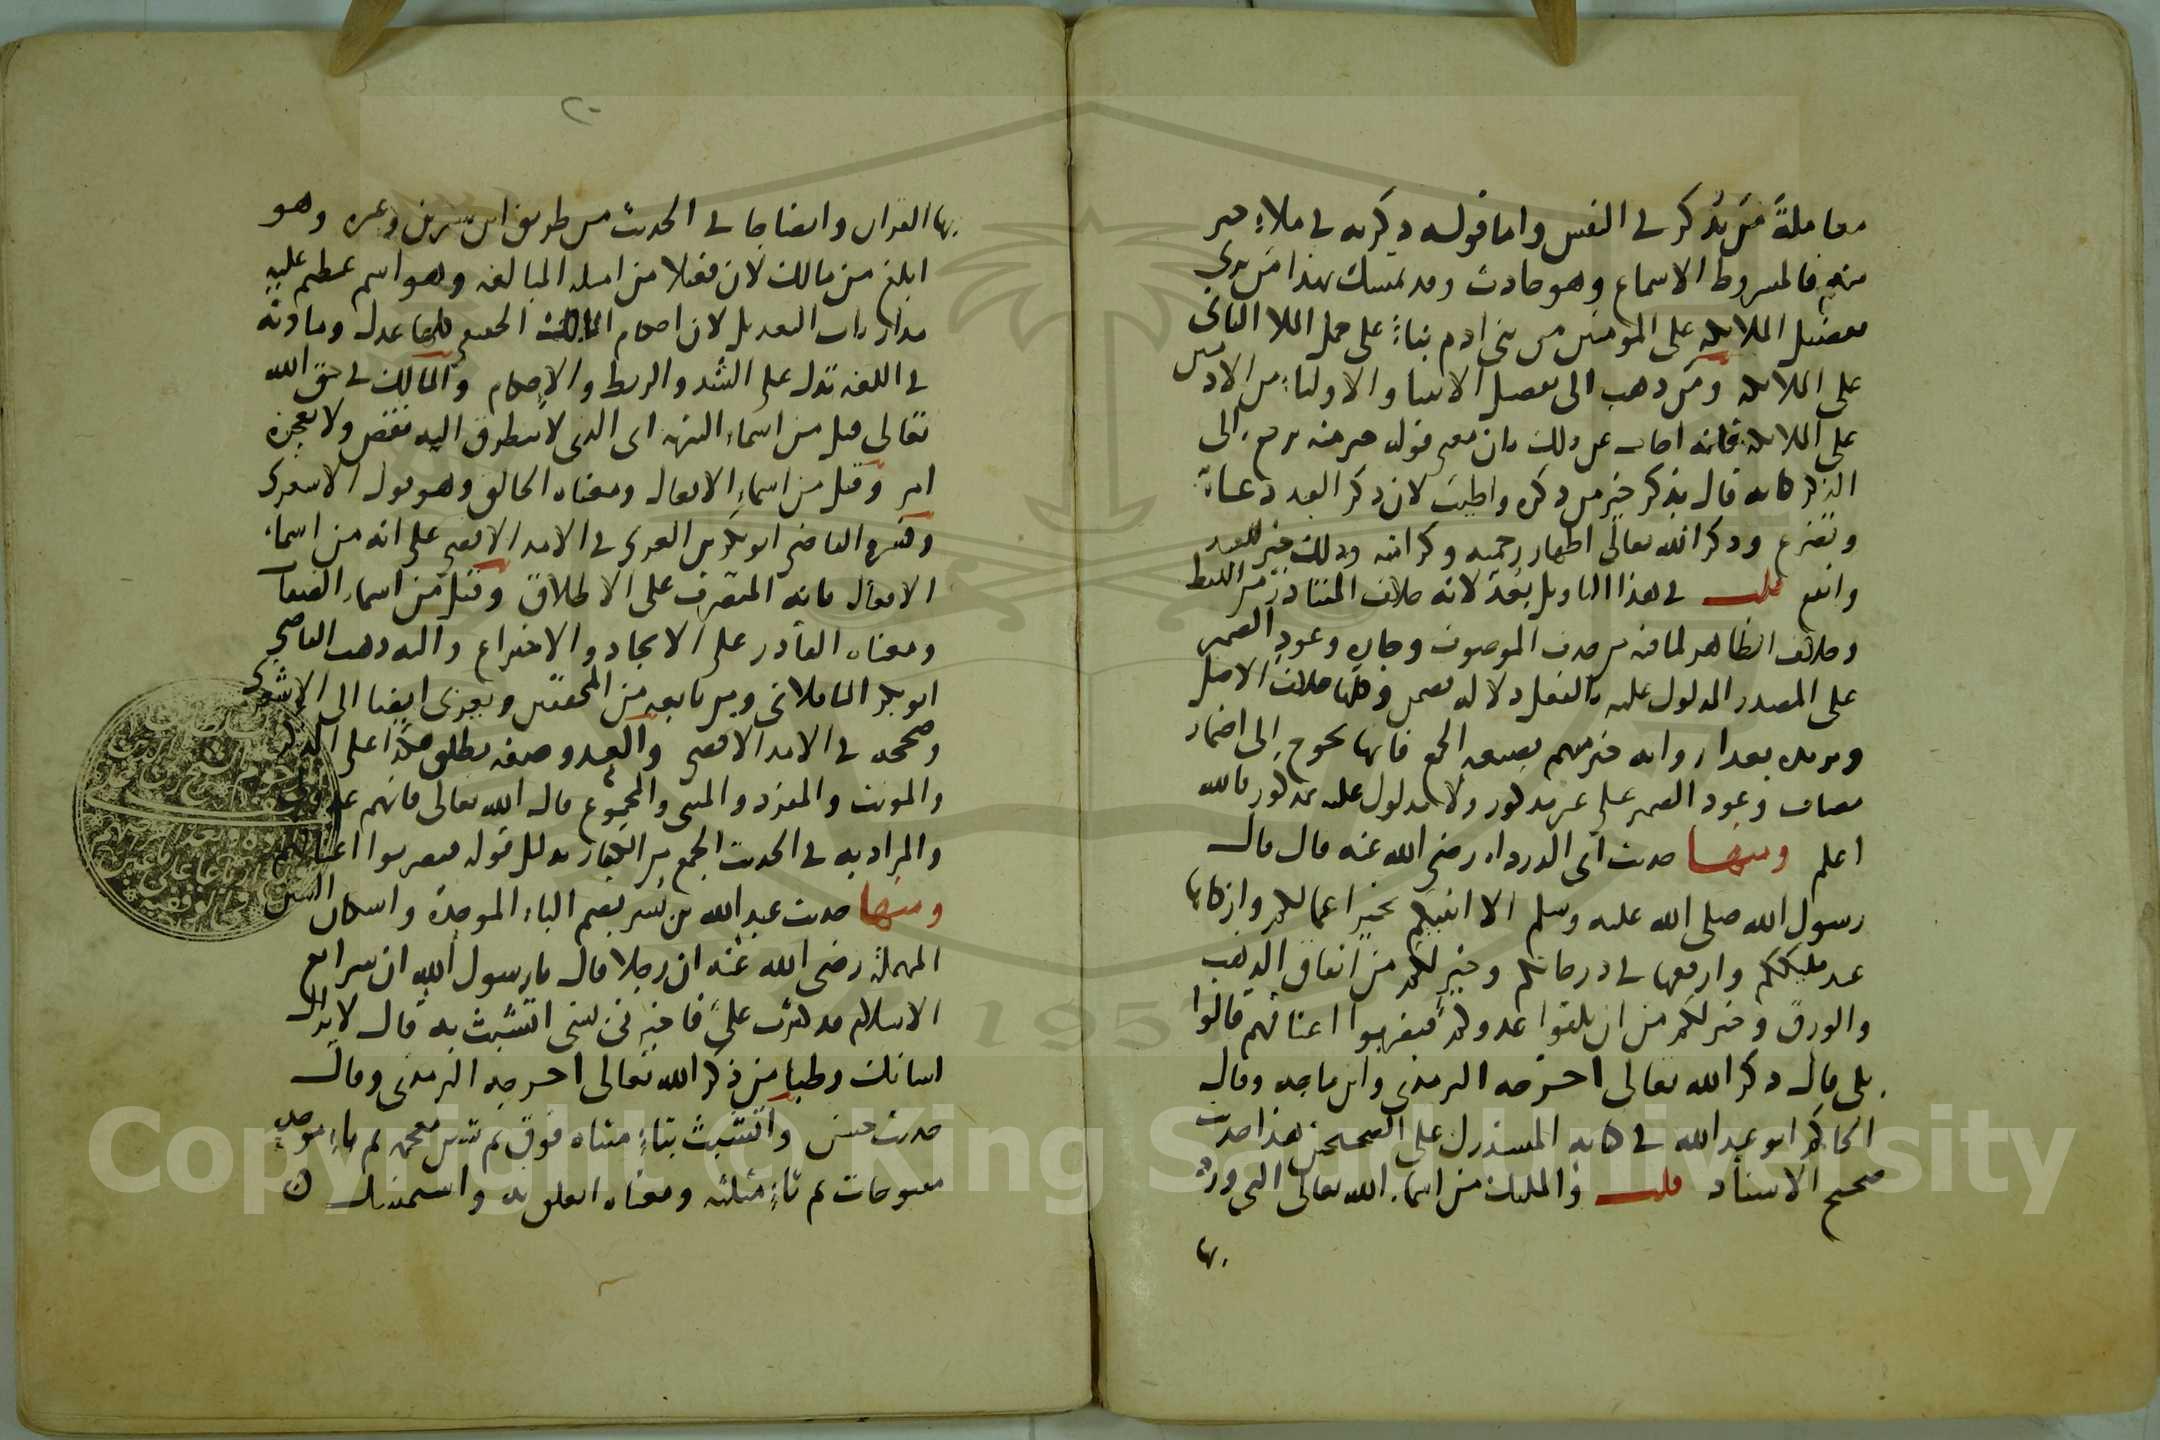 معاملة من يذكر في النفس واما قوله ذكرته في ملاء خير
منهم فالمشروط الاسماع وهو حادث وقد تمسك بهذا من يرى
تفضيل الملائكة على المومنين من بني ادم بناءً على حمل الملا الثاني
على الملائكة ومن ذهب الى تفضيل الانبيا والاولياء من الادميين
على الملائكة فانه اجاب عن ذلك بان معنى قوله خير منه يرجع الى
الذكر كانه قال بذكر خير من ذكره واطيب لان ذكر العبد دعاء
وتضرع وذكر الله تعالى اظهار رحمته وكرامته وذلك خير للعبد
وانفع قلت في هذا التاويل بُعدٌ لانه خلاف المتبادر من اللفظ
وخلاف الظاهر لما فيه من حذف الموصوف وجاره وعود الضمير
على المصدر المدلول عليه بالفعل دلالة تضمن وكلها خلاف الاصل
ويريده بعدا رواية خير منهم بصيغة الجمع فانها تحوج الى اضمار
مضاف وعود الضمير على غير مذكور ولا مدلول عليه بمذكور فالله
اعلم ومنها حديث ابي الدرداء رضي الله عنه قال قال
رسول الله صلى الله عليه وسلم الا انبيكم بخير اعمالكم وازكاها
عند مليككم وارفعها في درجاتكم وخير لكم من انفاق الذهب
والورق وخير لكم من ان تلقوا عدوكم فتضربوا اعناقهم قالوا
بلى قال ذكر الله تعالى اخرجه الترمذي وابن ماجه وقال
الحاكم ابو عبد الله في كتابه المستدرك على الصحيحين هذا حديث
صحيح الاسناد قلت والمليك من اسماء الله تعالى التي ورد
بها
٢٠
بها القران وايضا جا في الحديث من طريق ابن سيرين وغيره وهو
ابلغ من مالك لان فعيلا من امثلة المبالغة وهو اسم عظيم عليه
مدار باب التعديل لان احكام المالك الحقيقي كلها عدل ومادته
في اللغة تدل على الشد والربط والاحكام والمالك في حق الله
تعالى قيل من اسماء التنزيه اي الذي لا يتطرق اليه نقص ولا يعجزه
امر وقيل من اسماء الافعال ومعناه الخالق وهو قول الاشعري
القاضي ابو بكر بن العربي في الامد الاقصى على انه من اسماء
الافعال فانه المتصرف على الاطلاق وقيل من اسماء الصفات
ومعناه القادر على الايجاد والاختراع واليه ذهب القاضي
ابو بكر الباقلاني ومن تابعه من المحققين ويعزى ايضا الى الاشعري
وصححه في الامد الاقصى والعدو صفة يطلق هكذا على المذكر
والمونث والمفرد والمثنى والمجموع قال الله تعالى فانهم عدو لي
والمراد به في الحديث الجمع من الكفار بدليل قوله فتضربوا اعناقهم
ومنها حديث عبد الله بن بسر بضم الباء الموحدة واسكان السين
المهملة رضي الله عنه ان رجلا قال يا رسول الله ان شرايع
الاسلام قد كثرت عليَّ فاخبرني بشي اتشبث به قال لا يزال
لسانك رطبا من ذكر الله تعالى اخرجه الترمذي وقال
حديث حسن واتشبث بتاءٍ مثناه فوق ثم شين معجمه ثم باءٍ موحده
مفتوحات ثم ثاءٍ مثلثه ومعناه اتعلق به واستمسك
Copyright © King Saud University
1957